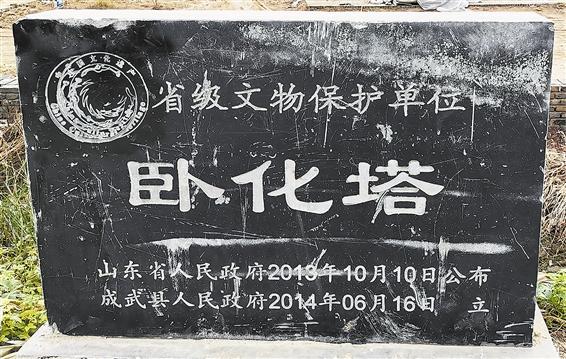 中国文化遗产
China Cultural Heritage
省级文物保护单位
卧化塔
山东省人民政府2013年10月10日公布
成武县人民政府2014年06月16日 立